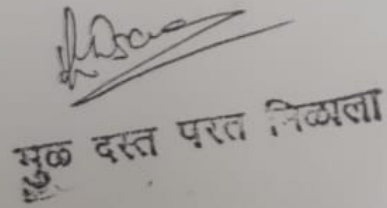 मुळ दस्त परत मिळाला